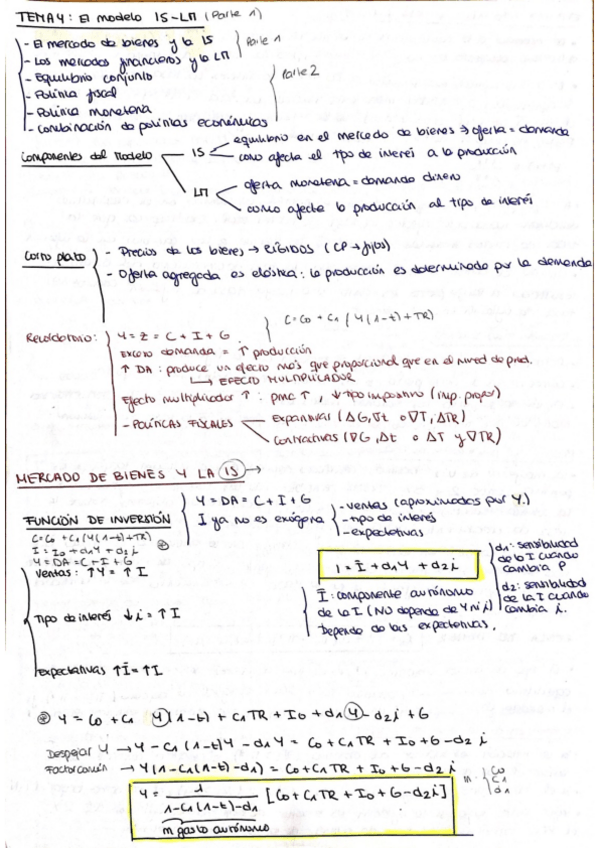 TEMA 4: El modelo IS-LM (Parte 1)
- El mercado de bienes y la IS
- Los mercados financieros y la LM
Parte 1
- Equilibrio conjunto
- Política fiscal
- Política monetaria
- Combinación de políticas económicas
Parte 2
Componentes del modelo
IS
equilibrio en el mercado de bienes → oferta = demanda
como afecta el tipo de interés a la producción
LM
oferta monetaria = demanda dinero
como afecta la producción al tipo de interés
Corto plazo
- Precios de los bienes → RÍGIDOS (CP → fijos)
- Oferta agregada es elástica: la producción es determinada por la demanda
Recordatorio:
Y = Z = C + I + G
C = C0 + C1 (Y(1-t) + TR)
Exceso demanda = ↑ producción
↑ DA: produce un efecto más que proporcional que en el nivel de prod.
↳ EFECTO MULTIPLICADOR
Efecto multiplicador ↑ : pmc ↑ , ↓ tipo impositivo (imp. propor)
- POLÍTICAS FISCALES
Expansivas (ΔG, ∇t o ∇T, ΔTR)
Contractivas (∇G, Δt o ΔT y ∇TR)
MERCADO DE BIENES Y LA IS →
FUNCIÓN DE INVERSIÓN
Y = DA = C + I + G
I ya no es exógena
- ventas (aproximados por Y.)
- tipo de interés
- expectativas
C = C0 + C1 (Y(1-t) + TR)
I = I0 + d1Y + d2i
Y = DA = C + I + G
I = Ī + d1Y + d2i
d1: sensibilidad
de la I cuando
cambia P
d2: sensibilidad
de la I cuando
cambia i.
Ventas: ↑Y = ↑I
Ī: componente autónomo
de la I (NO depende de Y ni i)
Depende de las expectativas.
Tipo de interés ↓i = ↑I
expectativas ↑Ī = ↑I
Y = C0 + C1 Y(1-t) + C1TR + I0 + d1Y - d2i + G
Despejar Y → Y - C1(1-t)Y - d1Y = C0 + C1TR + I0 + G - d2i
Factor común → Y(1-C1(1-t)-d1) = C0 + C1TR + I0 + G - d2i
Y = 1 / 1-C1(1-t)-d1 [C0 + C1TR + I0 + G - d2i]
m gasto autónomo
m
C0
C1
d1